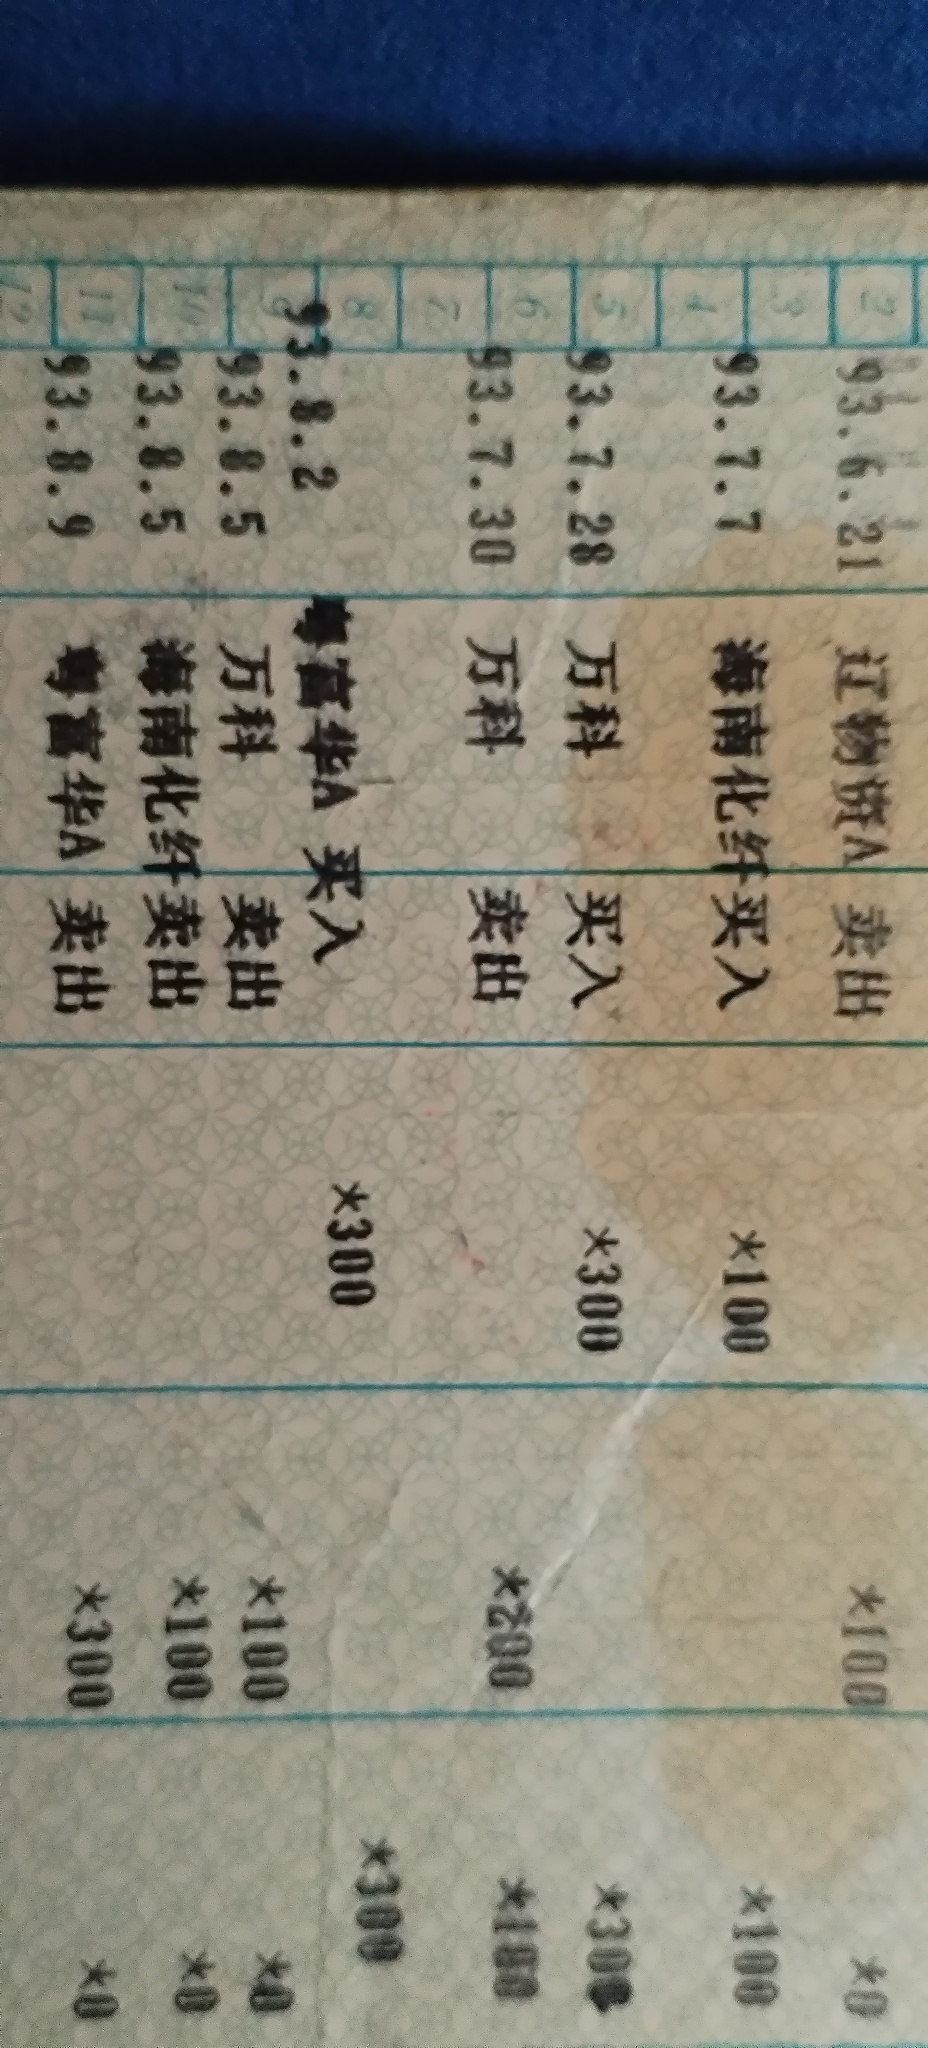 2 93.6.21 辽物资A 卖出 *100 *0
3
4 93.7.7 海南化纤 买入 *100 *100
5 93.7.28 万科 买入 *300 *300
6 93.7.30 万科 卖出 *200 *100
7
8
9 93.8.2 粤富华A 买入 *300 *300
93.8.5 万科 卖出 *100 *0
10 93.8.5 海南化纤 卖出 *100 *0
11 93.8.9 粤富华A 卖出 *300 *0
12